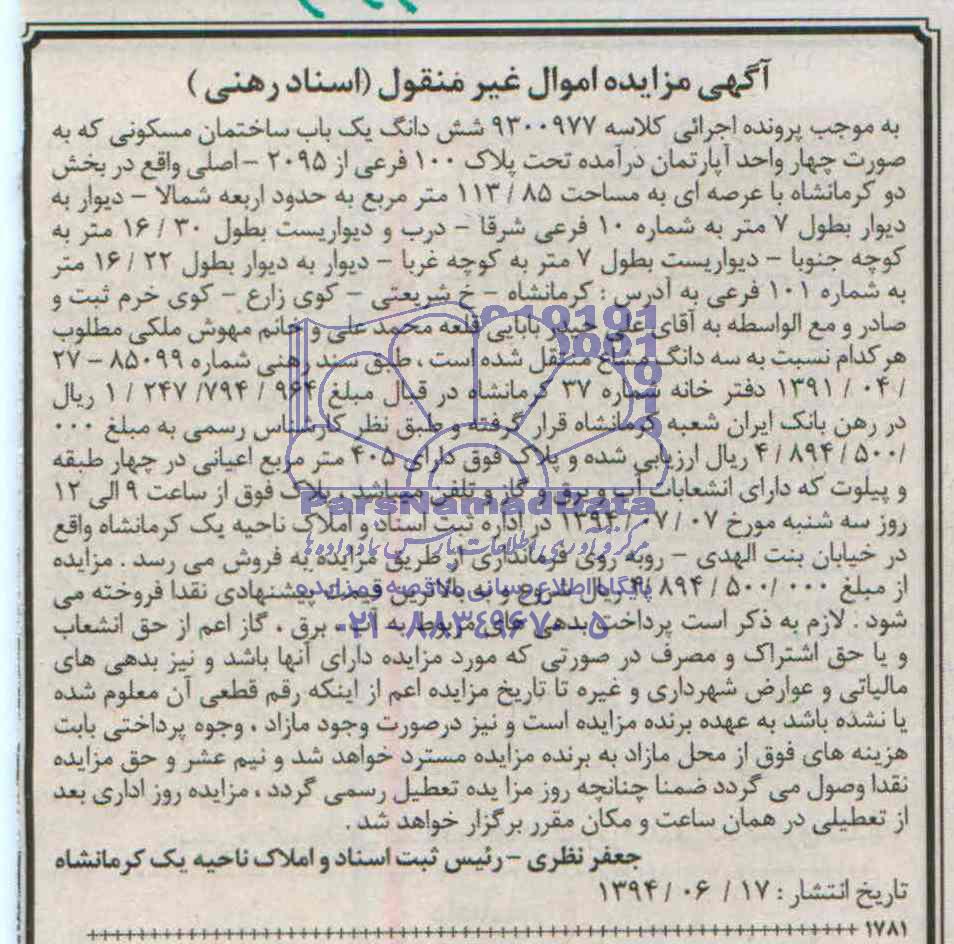 آگهی مزایده اموال غیر منقول (اسناد رهنی)
به موجب پرونده اجرائی کلاسه ۹۳۰۰۹۷۷ شش دانگ یک باب ساختمان مسکونی که به
صورت چهار واحد آپارتمان درآمده تحت پلاک ۱۰۰ فرعی از ۲۰۹۵ – اصلی واقع در بخش
دو کرمانشاه با عرصه ای به مساحت ۸۵ / ۱۱۳ متر مربع به حدود اربعه شمالا – دیوار به
دیوار بطول ۷ متر به شماره ۱۰ فرعی شرقا – درب و دیواریست بطول ۳۰ / ۱۶ متر به
کوچه جنوبا – دیواریست بطول ۷ متر به کوچه غربا – دیوار به دیوار بطول ۲۲ / ۱۶ متر
به شماره ۱۰۱ فرعی به آدرس : کرمانشاه – خ شریعتی – کوی زارع – کوی خرم ثبت و
صادر و مع الواسطه به آقای علی حیدر بابایی قلعه محمد علی و خانم مهوش ملکی مطلوب
هر کدام نسبت به سه دانگ مشاع منتقل شده است ، طبق سند رهنی شماره ۸۵۰۹۹ – ۲۷
/ ۰۴ / ۱۳۹۱ دفتر خانه شماره ۳۷ کرمانشاه در قبال مبلغ ۹۶۴ / ۷۹۴/ ۲۴۷ / ۱ ریال
در رهن بانک ایران شعبه کرمانشاه قرار گرفته و طبق نظر کارشناس رسمی به مبلغ ۰۰۰
/۵۰۰ / ۸۹۴ / ۴ ریال ارزیابی شده و پلاک فوق دارای ۴۰۵ متر مربع اعیانی در چهار طبقه
و پیلوت که دارای انشعابات آب و برق و گاز و تلفن میباشد ، پلاک فوق از ساعت ۹ الی ۱۲
روز سه شنبه مورخ ۰۷ / ۰۷ / ۱۳۹۴ در اداره ثبت اسناد و املاک ناحیه یک کرمانشاه واقع
در خیابان بنت الهدی – روبه روی فرمانداری از طریق مزایده به فروش می رسد . مزایده
از مبلغ ۰۰۰ /۵۰۰ / ۸۹۴ / ۴ ریال شروع و به بالاترین قیمت پیشنهادی نقدا فروخته می
شود . لازم به ذکر است پرداخت بدهی های مربوط به آب ، برق ، گاز اعم از حق انشعاب
و یا حق اشتراک و مصرف در صورتی که مورد مزایده دارای آنها باشد و نیز بدهی های
مالیاتی و عوارض شهرداری و غیره تا تاریخ مزایده اعم از اینکه رقم قطعی آن معلوم شده
یا نشده باشد به عهده برنده مزایده است و نیز درصورت وجود مازاد ، وجوه پرداختی بابت
هزینه های فوق از محل مازاد به برنده مزایده مسترد خواهد شد و نیم عشر و حق مزایده
نقدا وصول می گردد ضمنا چنانچه روز مزا یده تعطیل رسمی گردد ، مزایده روز اداری بعد
از تعطیلی در همان ساعت و مکان مقرر برگزار خواهد شد .
جعفر نظری – رئیس ثبت اسناد و املاک ناحیه یک کرمانشاه
تاریخ انتشار : ۱۷ / ۰۶ / ۱۳۹۴
۱۷۸۱
ParsNamadData
مرکز فرآوری اطلاعات پارس نماد داده ها
پایگاه اطلاع رسانی مناقصه و مزایده
۰۲۱-۸۸۳۴۹۶۷۰-۵